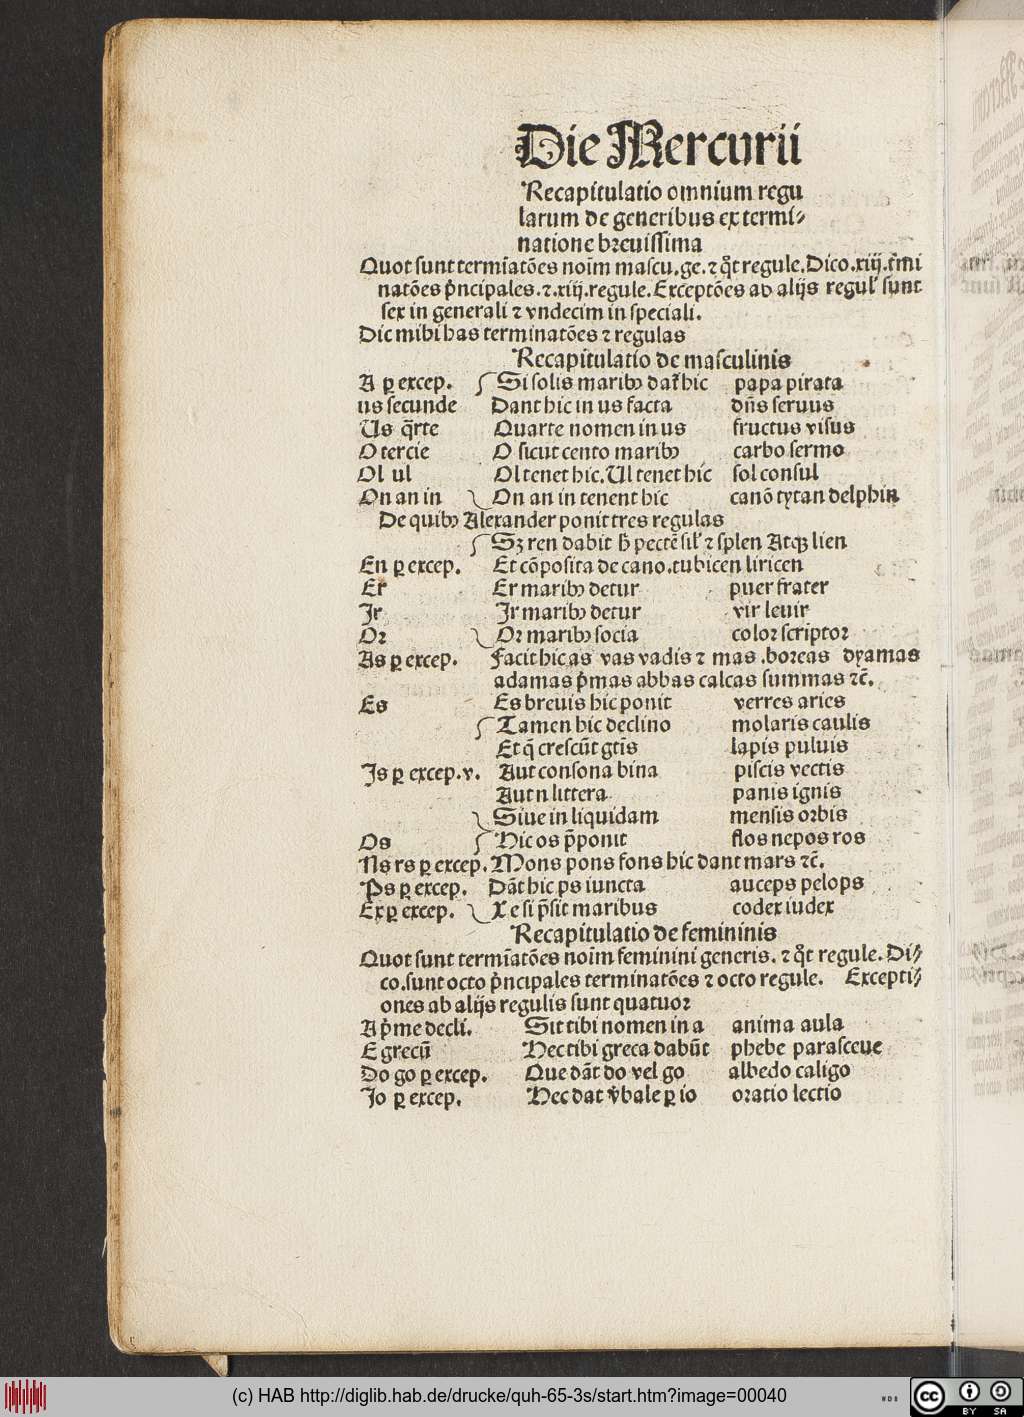 Die Mercurii
Recapitulatio omnium regu
larum de generibus ex termi⸗
natione breuissima
Quot sunt termīatões noīm mascu.ge.⁊ q̊t regule.Dico.xiij.t̄mi
natões p̄ncipales.⁊.xiij.regule.Exceptões ab alijs regul' sunt
sex in generali ⁊ vndecim in speciali.
Dic mihi has terminatões ⁊ regulas
Recapitulatio de masculinis
A ꝑ excep. Si solis maribꝰ dat̄ hic papa pirata
us secunde Dant hic in us facta dn̄s seruus
Us q̄rte Quarte nomen in us fructus visus
O tercie O sicut cento maribꝰ carbo sermo
Ol ul Ol tenet hic.Ul tenet hic sol consul
On an in On an in tenent hic canõ tytan delphin
De quibꝰ Alexander ponit tres regulas
Sꝫ ren dabit h̄ pectē sil' ⁊ splen Atqꝫ lien
En ꝑ excep. Et cõposita de cano.tubicen liricen
Er Er maribꝰ detur puer frater
Ir Ir maribꝰ detur vir leuir
Or Or maribꝰ socia color scriptor
As ꝑ excep. Facit hic as vas vadis ⁊ mas .boreas dyamas
adamas p̄mas abbas calcas summas ⁊c̄.
Es Es breuis hic ponit verres aries
Tamen hic declino molaris caulis
Et q̄ crescūt gtīs lapis puluis
Is ꝑ excep.v. Aut consona bina piscis vectis
Aut n littera panis ignis
Siue in liquidam mensis orbis
Os Hic os p̄ponit flos nepos ros
Ns rs ꝑ excep. Mons pons fons hic dant mars ⁊c̄.
Ps ꝑ excep. Dāt hic ps iuncta auceps pelops
Ex ꝑ excep. X e si p̄sit maribus codex iudex
Recapitulatio de femininis
Quot sunt termīatões noīm feminini generis. ⁊ q̊t regule. Di⸗
co.sunt octo p̄ncipales terminatões ⁊ octo regule. Excepti⸗
ones ab alijs regulis sunt quatuor
A p̄me decli. Sit tibi nomen in a anima aula
E grecū Hec tibi greca dabūt phebe parasceue
Do go ꝑ excep. Que dāt do vel go albedo caligo
Io ꝑ excep. Hec dat v̄bale ꝑ io oratio lectio
(c) HAB http://diglib.hab.de/drucke/quh-65-3s/start.htm?image=00040
cc BY SA